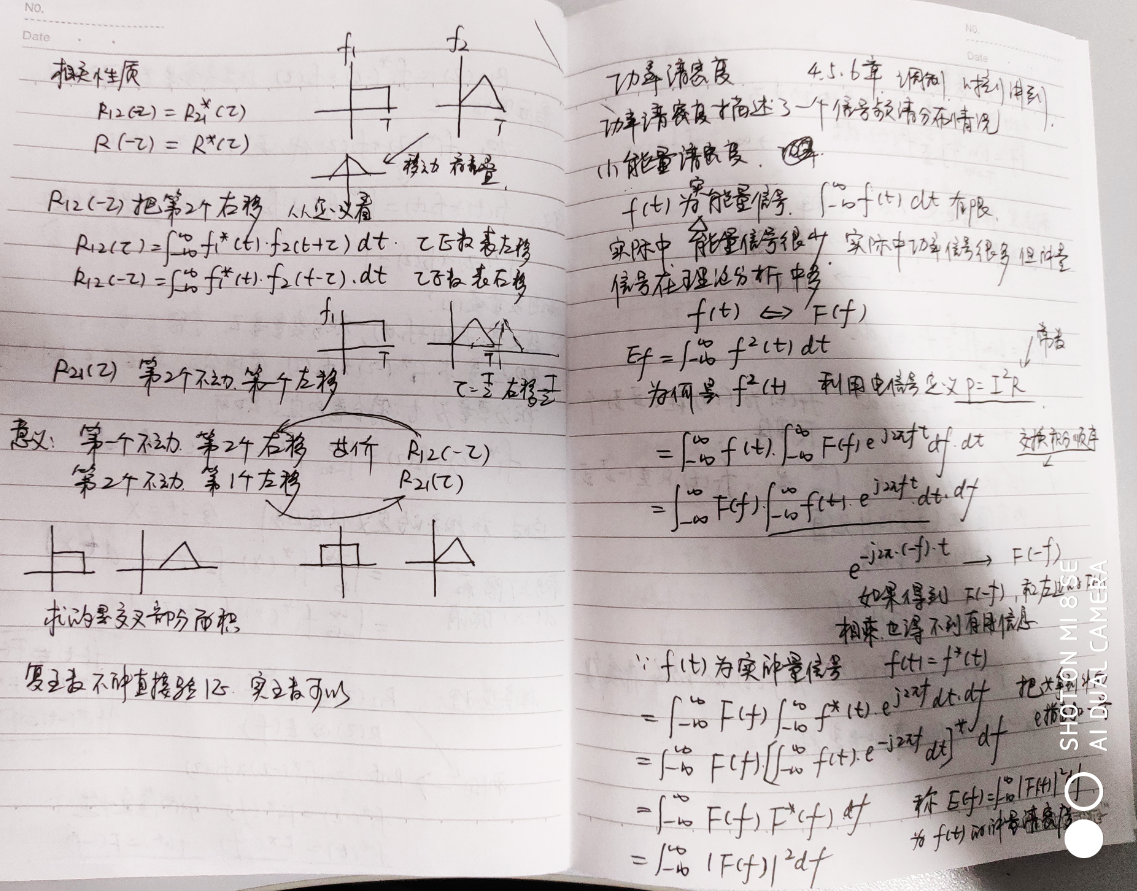 No.
Date
相关性质
R12(-τ) = R21*(τ)
R(-τ) = R*(τ)
f1
f2
T
T
移动
R12(-τ) 把第2个右移 从定义看
R12(τ) = ∫-∞^∞ f1*(t)·f2(t+τ) dt. τ正数表左移
R12(-τ) = ∫-∞^∞ f1*(t)·f2(t-τ)·dt τ正数表右移
f1
T
T
τ=T/2 右移T/2
R21(τ) 第2个不动 第一个左移
意义: 第一个不动 第2个右移 R12(-τ)
第2个不动 第1个左移 R21(τ)
求的是交叉部分面积
复函数不能直接验证 实函数可以
No.
Date
功率谱密度 4.5.6章 调制
功率谱密度描述了一个信号频谱分布情况
(1)能量谱密度.
f(t)为实能量信号. ∫-∞^∞ f(t) dt 有限.
实际中 能量信号很少, 实际中功率信号很多 但能量
信号在理论分析中多
f(t) ⇔ F(f)
Ef = ∫-∞^∞ f²(t) dt
为何是 f²(t) 利用电信号定义 P=I²R
= ∫-∞^∞ f(t)·∫-∞^∞ F(f) e^j2πft df·dt
交换积分顺序
= ∫-∞^∞ F(f)·∫-∞^∞ f(t)·e^j2πft dt·df
e^-j2π·(-f)·t → F(-f)
如果得到 F(-f),和左边的F
相乘也得不到有用信息
∵ f(t)为实能量信号 f(t) = f*(t)
= ∫-∞^∞ F(f) ∫-∞^∞ f*(t)·e^j2πf dt·df
= ∫-∞^∞ F(f)·[∫-∞^∞ f(t)·e^-j2πf dt]* df
= ∫-∞^∞ F(f)·F*(f) df
称 E(f)=∫-∞^∞ |F(f)|² df
为 f(t)的能量谱密度
= ∫-∞^∞ |F(f)|² df
SHOT ON MI 8 SE
AI DUAL CAMERA